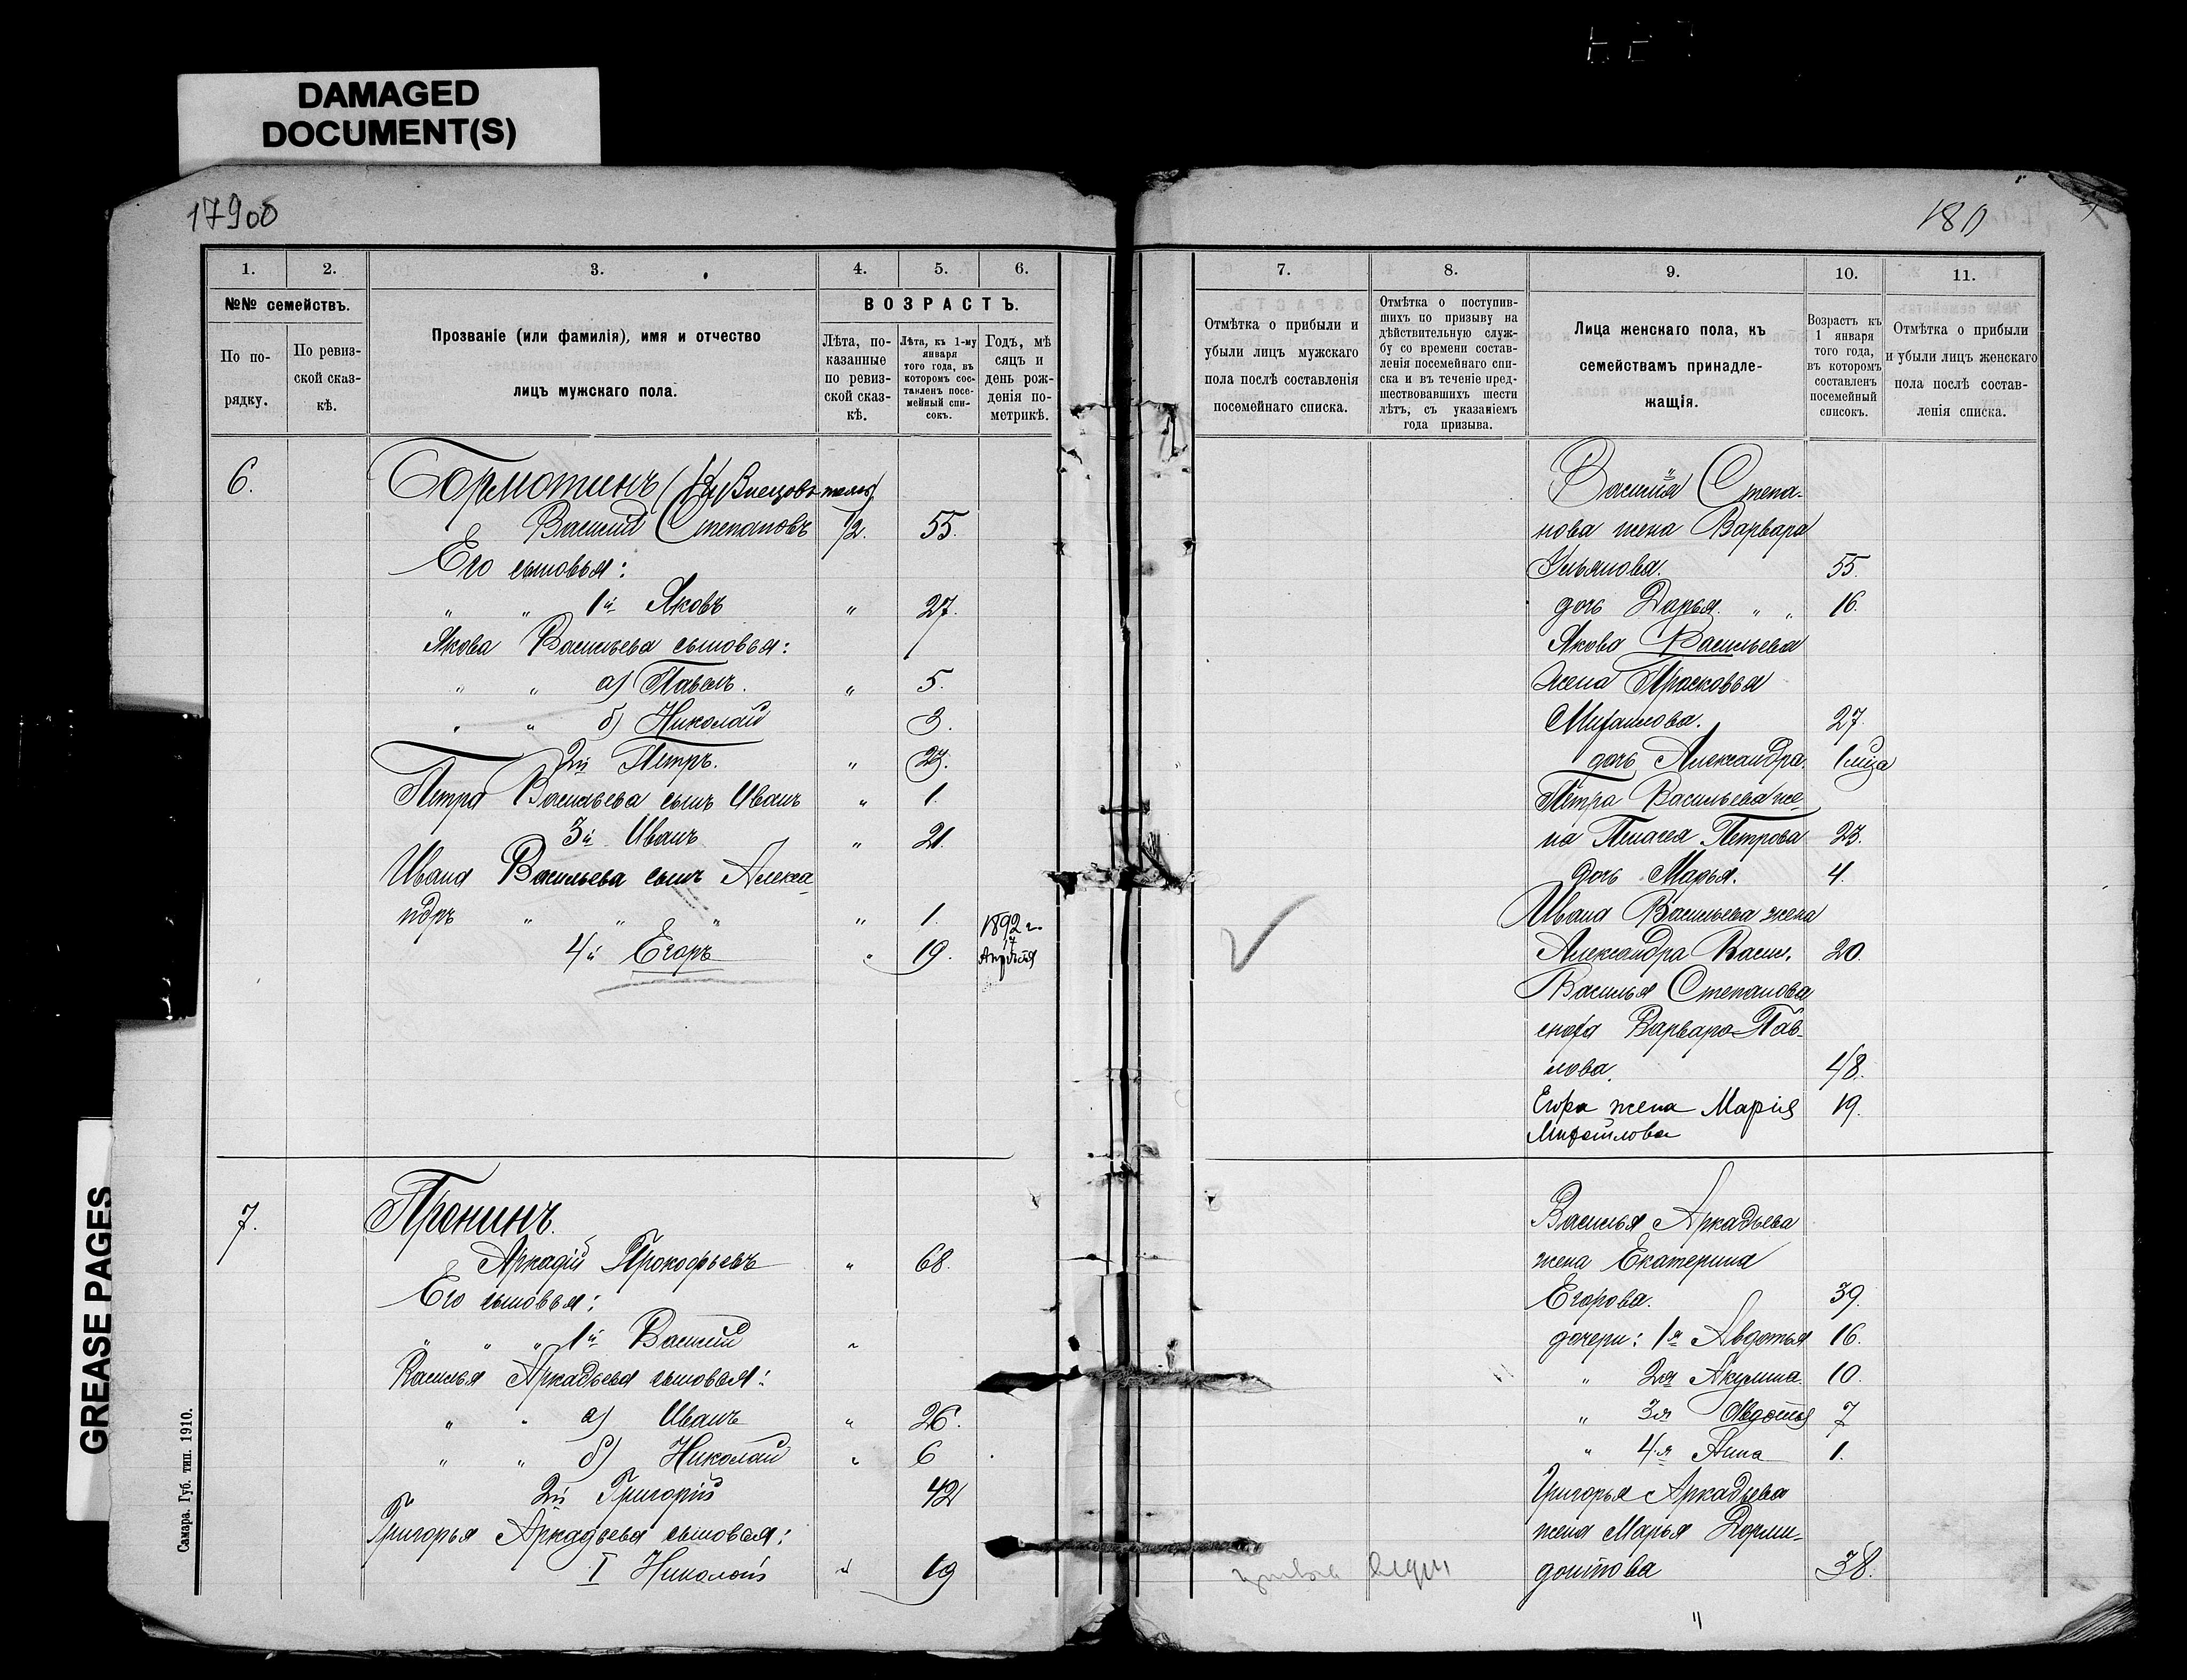 DAMAGED
DOCUMENT(S)
GREASE PAGES
179об
180
1.
2.
3.
4.
5.
6.
№№ семействъ.
По по-
рядку.
По ревиз-
ской сказ-
кѣ.
Прозваніе (или фамилія), имя и отчество
лицъ мужскаго пола.
ВОЗРАСТЪ.
Лѣта, по-
казанные
по ревиз-
ской сказ-
кѣ.
Лѣта, къ 1-му
января
того года, въ
которомъ сос-
тавленъ посе-
мейный спи-
сокъ.
Годъ, мѣ
сяцъ и
день рож-
денія по-
метрикѣ.
6.
Бормотинъ
Василій Степановъ 1/2. 55.
Его сыновья:
„ „ 1й Яковъ „ 27.
Якова Васильева сыновья:
„ „ а) Павелъ. „ 5.
„ „ б) Николай 3.
2й Петръ. „ 23.
Петра Васильева сынъ Иванъ „ 1.
3й Иванъ „ 21.
Ивана Васильева сынъ Алекса-
ндръ „ „ „ „ 1.
4й Егоръ „ 19. 1892 г.
17
Апрѣля
7.
Пронинъ.
Аркадій Прокофьевъ „ 68.
Его сыновья:
„ „ „ 1й Василій „
Василья Аркадьева сыновья:
„ „ а) Иванъ „ 26.
„ „ б) Николай „ 6
2й Григорій 42
Григорья Аркадьева сыновья:
I Николай „ 19
Самара. Губ. тип. 1910.
7.
8.
9.
10.
11.
Отмѣтка о прибыли и
убыли лицъ мужского
пола послѣ составленія
посемейнаго списка.
Отмѣтка о поступив-
шихъ по призыву на
дѣйствительную служ-
бу со времени состав-
ленія посемейнаго спи-
ска и въ теченіе пред-
шествовавшихъ шести
лѣтъ, съ указаніемъ
года призыва.
Лица женскаго пола, къ
семействамъ принадле-
жащія.
Возрастъ къ
1 января
того года,
въ которомъ
составленъ
посемейный
списокъ.
Отмѣтка о прибыли
и убыли лицъ женскаго
пола послѣ состав-
ленія списка.
Василія Степа-
нова жена Варвара
Ульянова. 55.
дочь Дарья. „ „ 16.
Якова Васильева
жена Прасковья
Михаилова. 27.
дочь Александра
Петра Васильева же-
на Пелагея Петрова 23.
дочь Марья. 4.
Ивана Васильева жена
Александра Васил. 20.
Василья Степанова
сноха Варвара Пав-
лова. 48.
Егора жена Марія 19.
Михайлова
Василья Аркадьева
жена Екатерина
Егорова. 39.
дочери: 1я Авдотья 16.
„ 2я Акулина. 10.
„ 3я Авдотья 7
„ 4я Анна 1.
Григорья Аркадьева
жена Марья Дорми-
донтова 38.